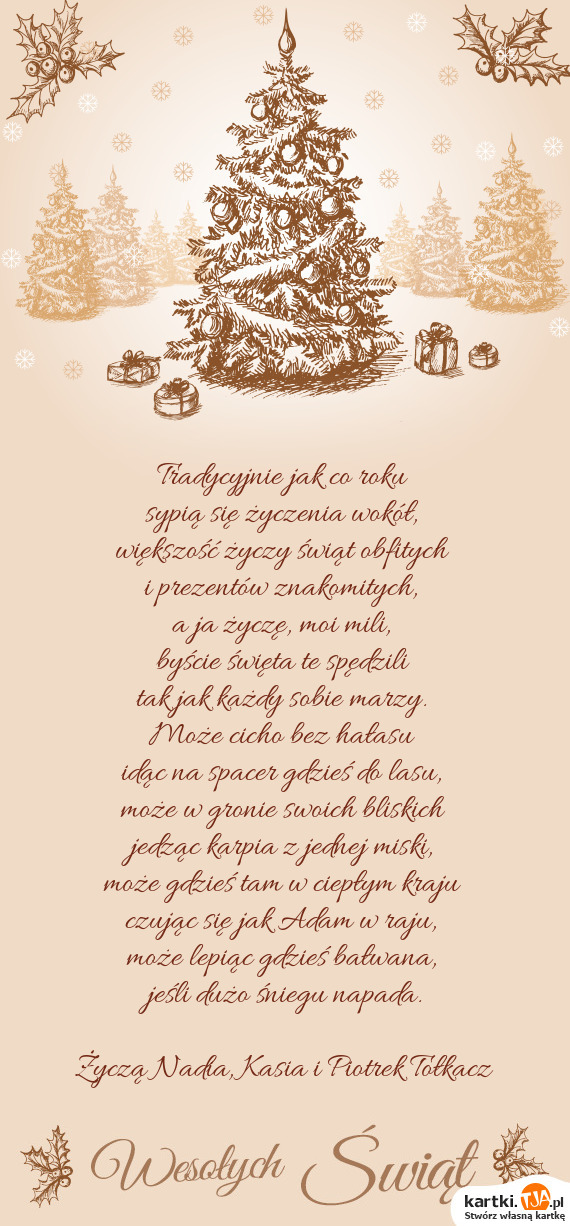 Tradycyjnie jak co roku
sypią się życzenia wokół,
większość życzy świąt obfitych
i prezentów znakomitych,
a ja życzę, moi mili,
byście święta te spędzili
tak jak każdy sobie marzy.
Może cicho bez hałasu
idąc na spacer gdzieś do lasu,
może w gronie swoich bliskich
jedząc karpia z jednej miski,
może gdzieś tam w ciepłym kraju
czując się jak Adam w raju,
może lepiąc gdzieś bałwana,
jeśli dużo śniegu napada.
Życzą Nadia, Kasia i Piotrek Tołkacz
Wesołych Świąt
kartki.TJA.pl
Stwórz własną kartkę